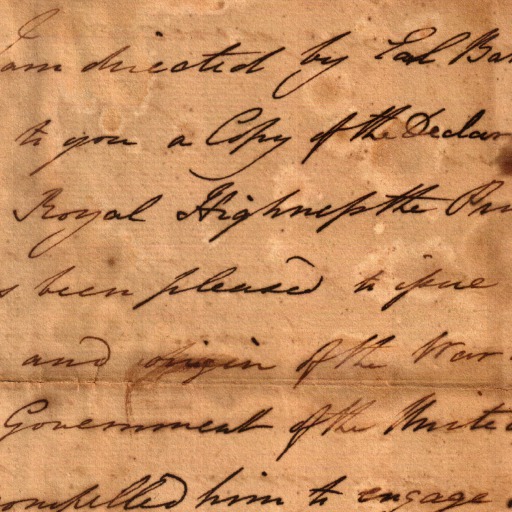 I
am directed by Earl Bat
to you a Copy of the Declar
Royal Highness the Prin
s been pleased to issue
and origin of the War
Government of the United
compelled him to engage